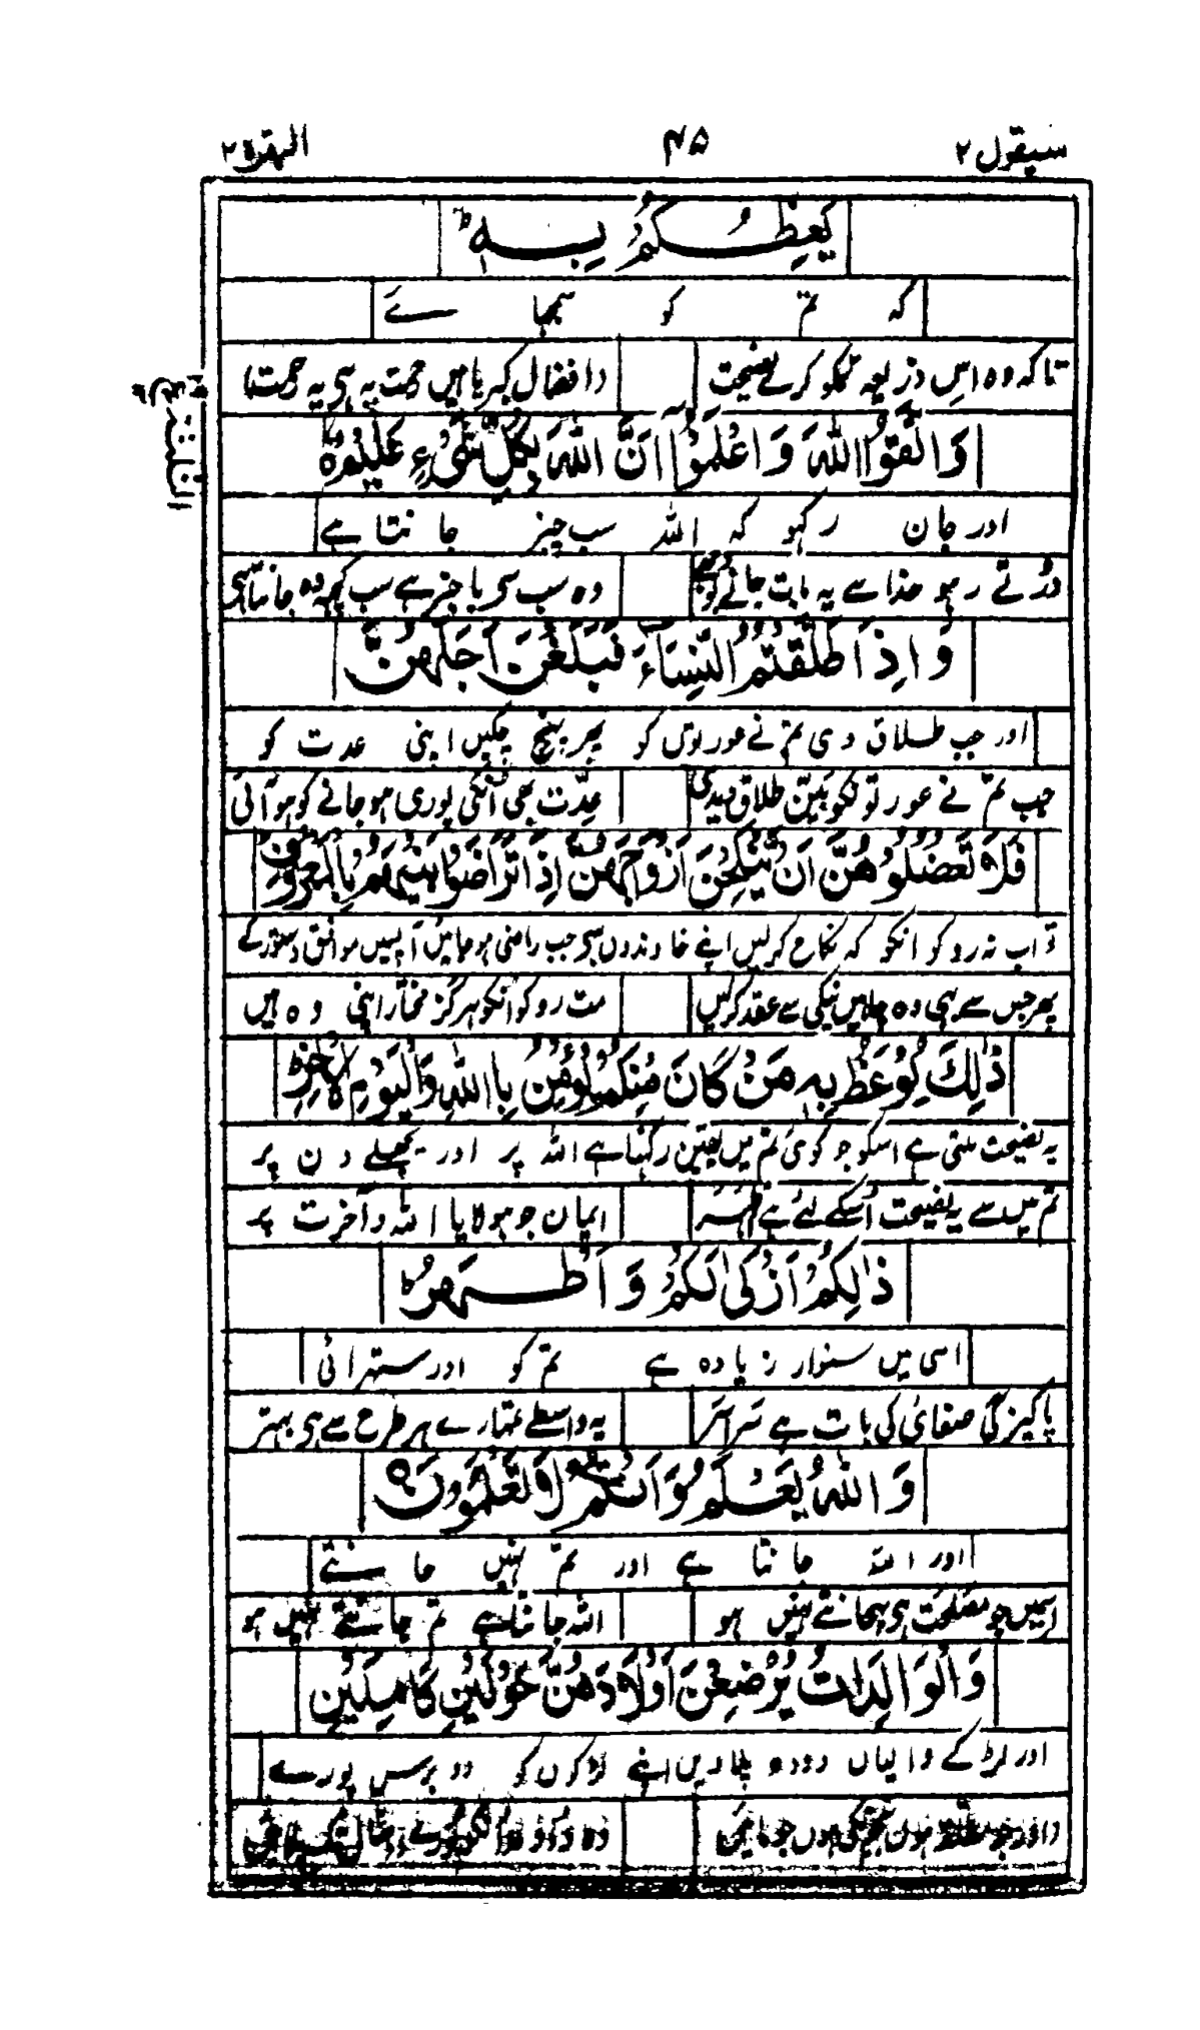 سیقول ۲ ۴۵ البقرة ۲
يَعِظُكُمْ بِهٖ ؕ
کہ تم کو سمجھا سے
تاکہ وہ اس ذریعہ تمکو کرے نصیحت
وَاتَّقُوا اللّٰهَ وَاعْلَمُوْٓا اَنَّ اللّٰهَ بِكُلِّ شَىْءٍ عَلِيْمٌ
الثلٰثة
اور جان رکھو کہ اللہ سب چیز جانتا ہے
ڈرتے رہو خدا سے یہ بات جانے وہ سب سی باخبر ہے سب کچھ وہ جانتا ہی
وَاِذَا طَلَّقْتُمُ النِّسَآءَ فَبَلَغْنَ اَجَلَهُنَّ
اور جب طلاق دی تم نے عورتوں کو پھر پہنچ چکیں اپنی عدت کو
جب تم نے عورتونکو بیّن طلاق دیدی عدّت بھی اُنکی پوری ہو جانے کو ہو آئی
فَلَا تَعْضُلُوْهُنَّ اَنْ يَّنْكِحْنَ اَزْوٰجَهُنَّ اِذَا تَرَاضَوْا بَيْنَهُمْ بِالْمَعْرُوْفِ
تو اب نہ روکو انکو کہ نکاح کرلیں اپنے خاوندوں سی جب راضی ہو جائیں آپسیں موافق دستور کے
پھر جس سے بھی وہ چاہیں نیکی سے عقد کرلیں مت روکو انکو ہرگز مختار اپنی وہ ہیں
ذٰلِكَ يُوْعَظُ بِهٖ مَنْ كَانَ مِنْكُمْ يُؤْمِنُ بِاللّٰهِ وَالْيَوْمِ الْاٰخِرِ
یہ نصیحت ملتی ہے اسکو جو کوئی تم میں یقین رکھتا ہے اللہ پر اور پچھلے دن پر
تم میں سے یہ نصیحت اُسکے لئے ہے ایمان جو ہو لایا اللہ و آخرت پر
ذٰلِكُمْ اَزْكٰى لَكُمْ وَاَطْهَرُ
اسی میں سنوار زیادہ ہے تم کو اور ستھرائی
پاکیزگی صفائی کی بات ہے سراسر یہ واسطے تمہارے ہر طرح سے ہی بہتر
وَاللّٰهُ يَعْلَمُ وَاَنْتُمْ لَا تَعْلَمُوْنَ
اور اللہ جانتا ہے اور تم نہیں جانتے
اسمیں جو مصلحت ہی پہچانتے نہیں ہو اللہ جانتا ہے تم جانتے نہیں ہو
وَالْوَالِدَاتُ يُرْضِعْنَ اَوْلَادَهُنَّ حَوْلَيْنِ كَامِلَيْنِ
اور لڑکے والیاں دودھ پلادیں اپنے لڑکوں کو دو برس پورے